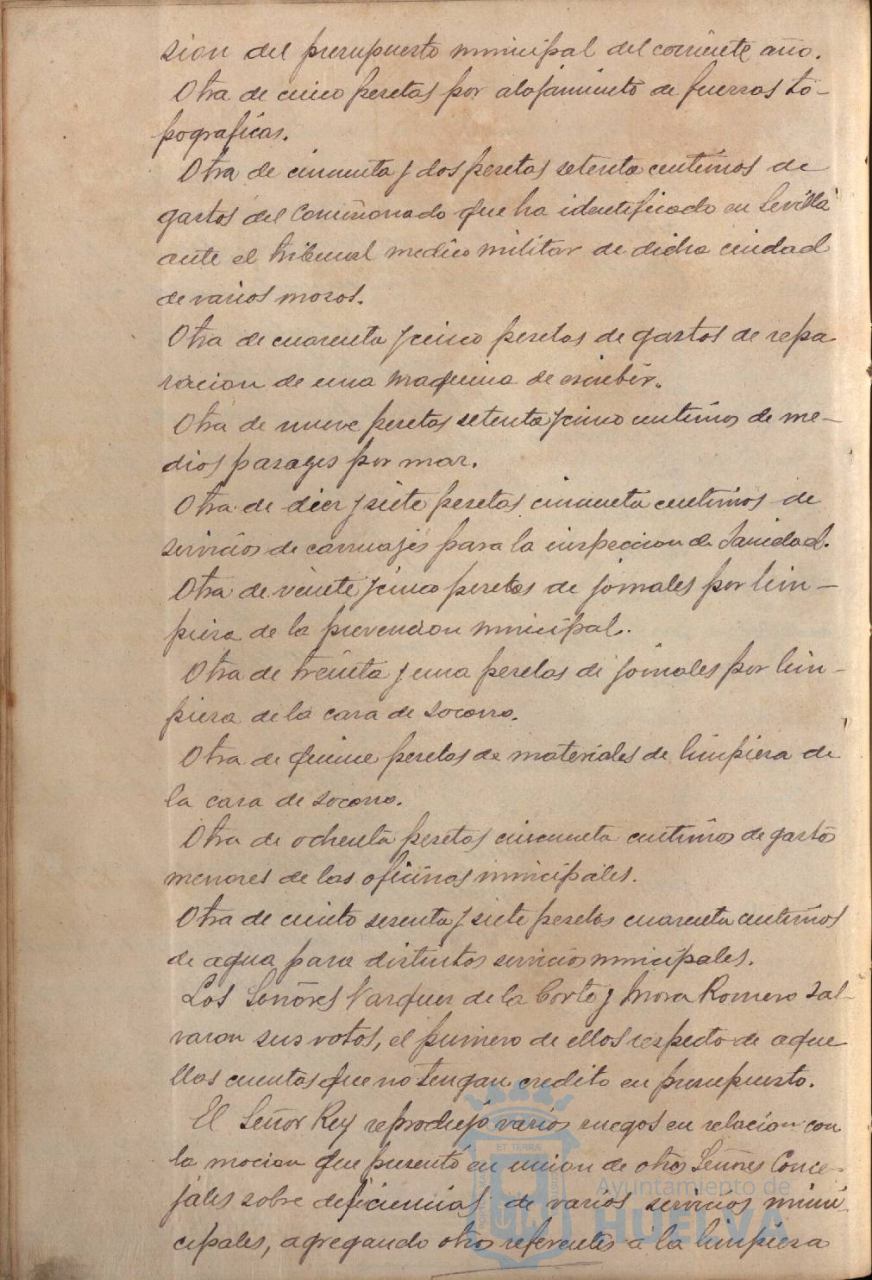 sion del presupuesto municipal del corriente año.
Otra de cinco pesetas por alojamiento de fuerzas to-
pograficas.
Otra de cincuenta y dos pesetas setenta centimos de
gastos del Comisionado que ha identificado en Sevilla
ante el tribunal medico militar de dicha ciudad
de varios mozos.
Otra de cuarenta y cinco pesetas de gastos de repa
racion de una maquina de escribir.
Otra de nueve pesetas setenta y cinco centimos de me-
dios pasages por mar.
Otra de diez y siete pesetas cincuenta centimos de
servicios de carruajes para la inspeccion de Sanidad.
Otra de veinte y cinco pesetas de jornales por lim-
pieza de la prevencion municipal.
Otra de treinta y una pesetas de jornales por lim-
pieza de la casa de socorro.
Otra de quince pesetas de materiales de limpieza de
la casa de socorro.
Otra de ochenta pesetas cincuenta centimos de gastos
menores de las oficinas municipales.
Otra de ciento sesenta y siete pesetas cuarenta centimos
de agua para distintos servicios municipales.
Los Señores Vazquez de la Corte y Mora Romero sal-
varon sus votos, el primero de ellos respecto de aque
llas cuentas que no tengan credito en presupuesto.
El Señor Rey reprodujo varios ruegos en relacion con
la mocion que presentó en union de otros Señores Conce-
jales sobre deficiencias de varios servicios muni
cipales, agregando otros referentes a la limpieza
ET TERRA
Ayuntamiento de
HUELVA